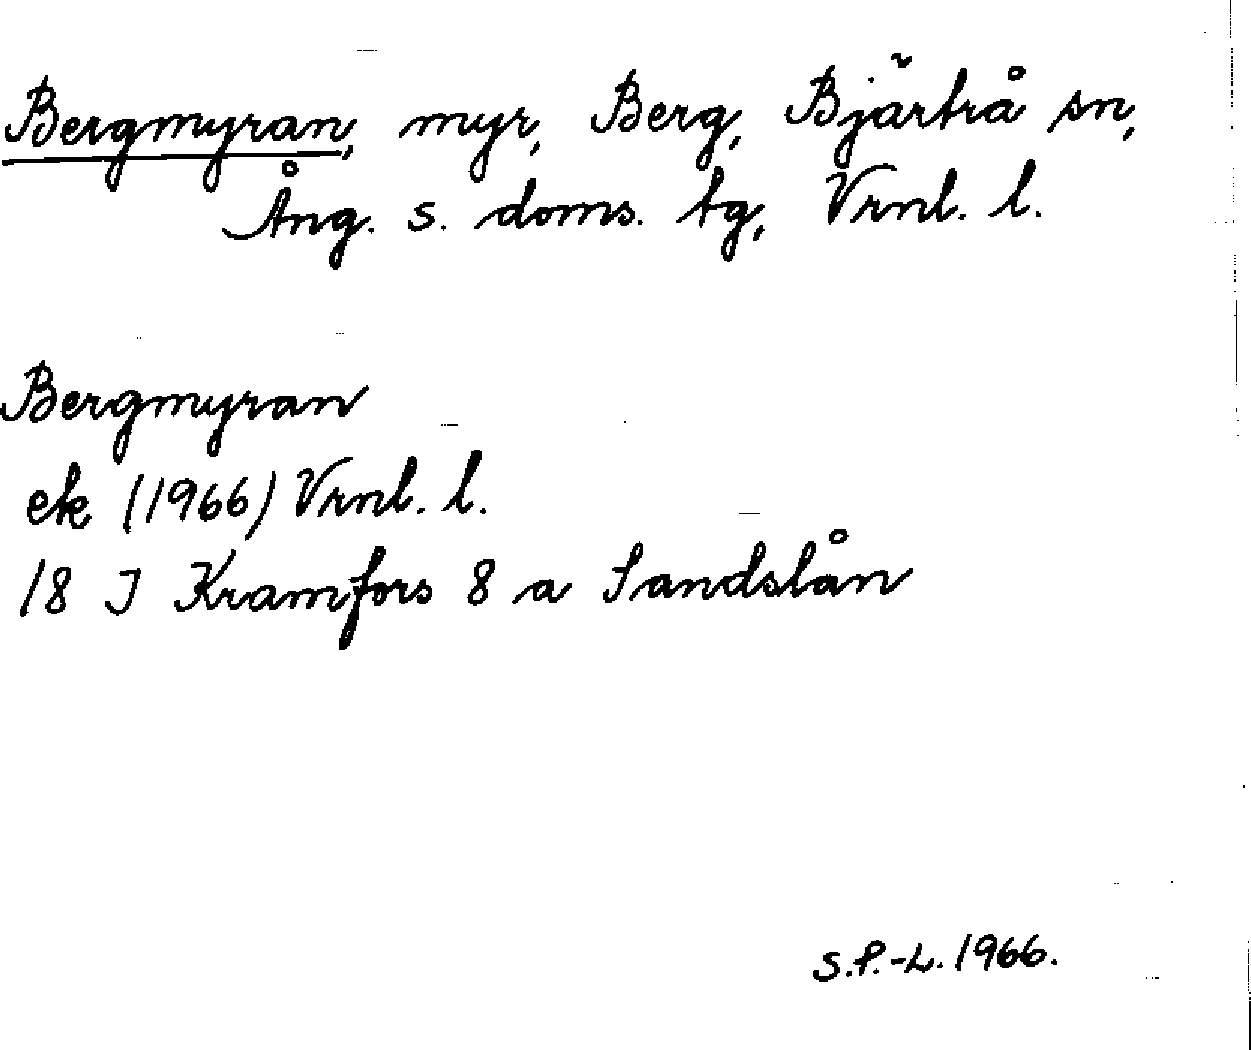 Bergmyran, myr, Berg, Bjärtrå sn,
Ång. s. doms. tg, Vrnl. l.
Bergmyran
ek (1966) Vrnl. l.
18 J Kramfors 8 a Sandslån
S.P.-L. 1966.